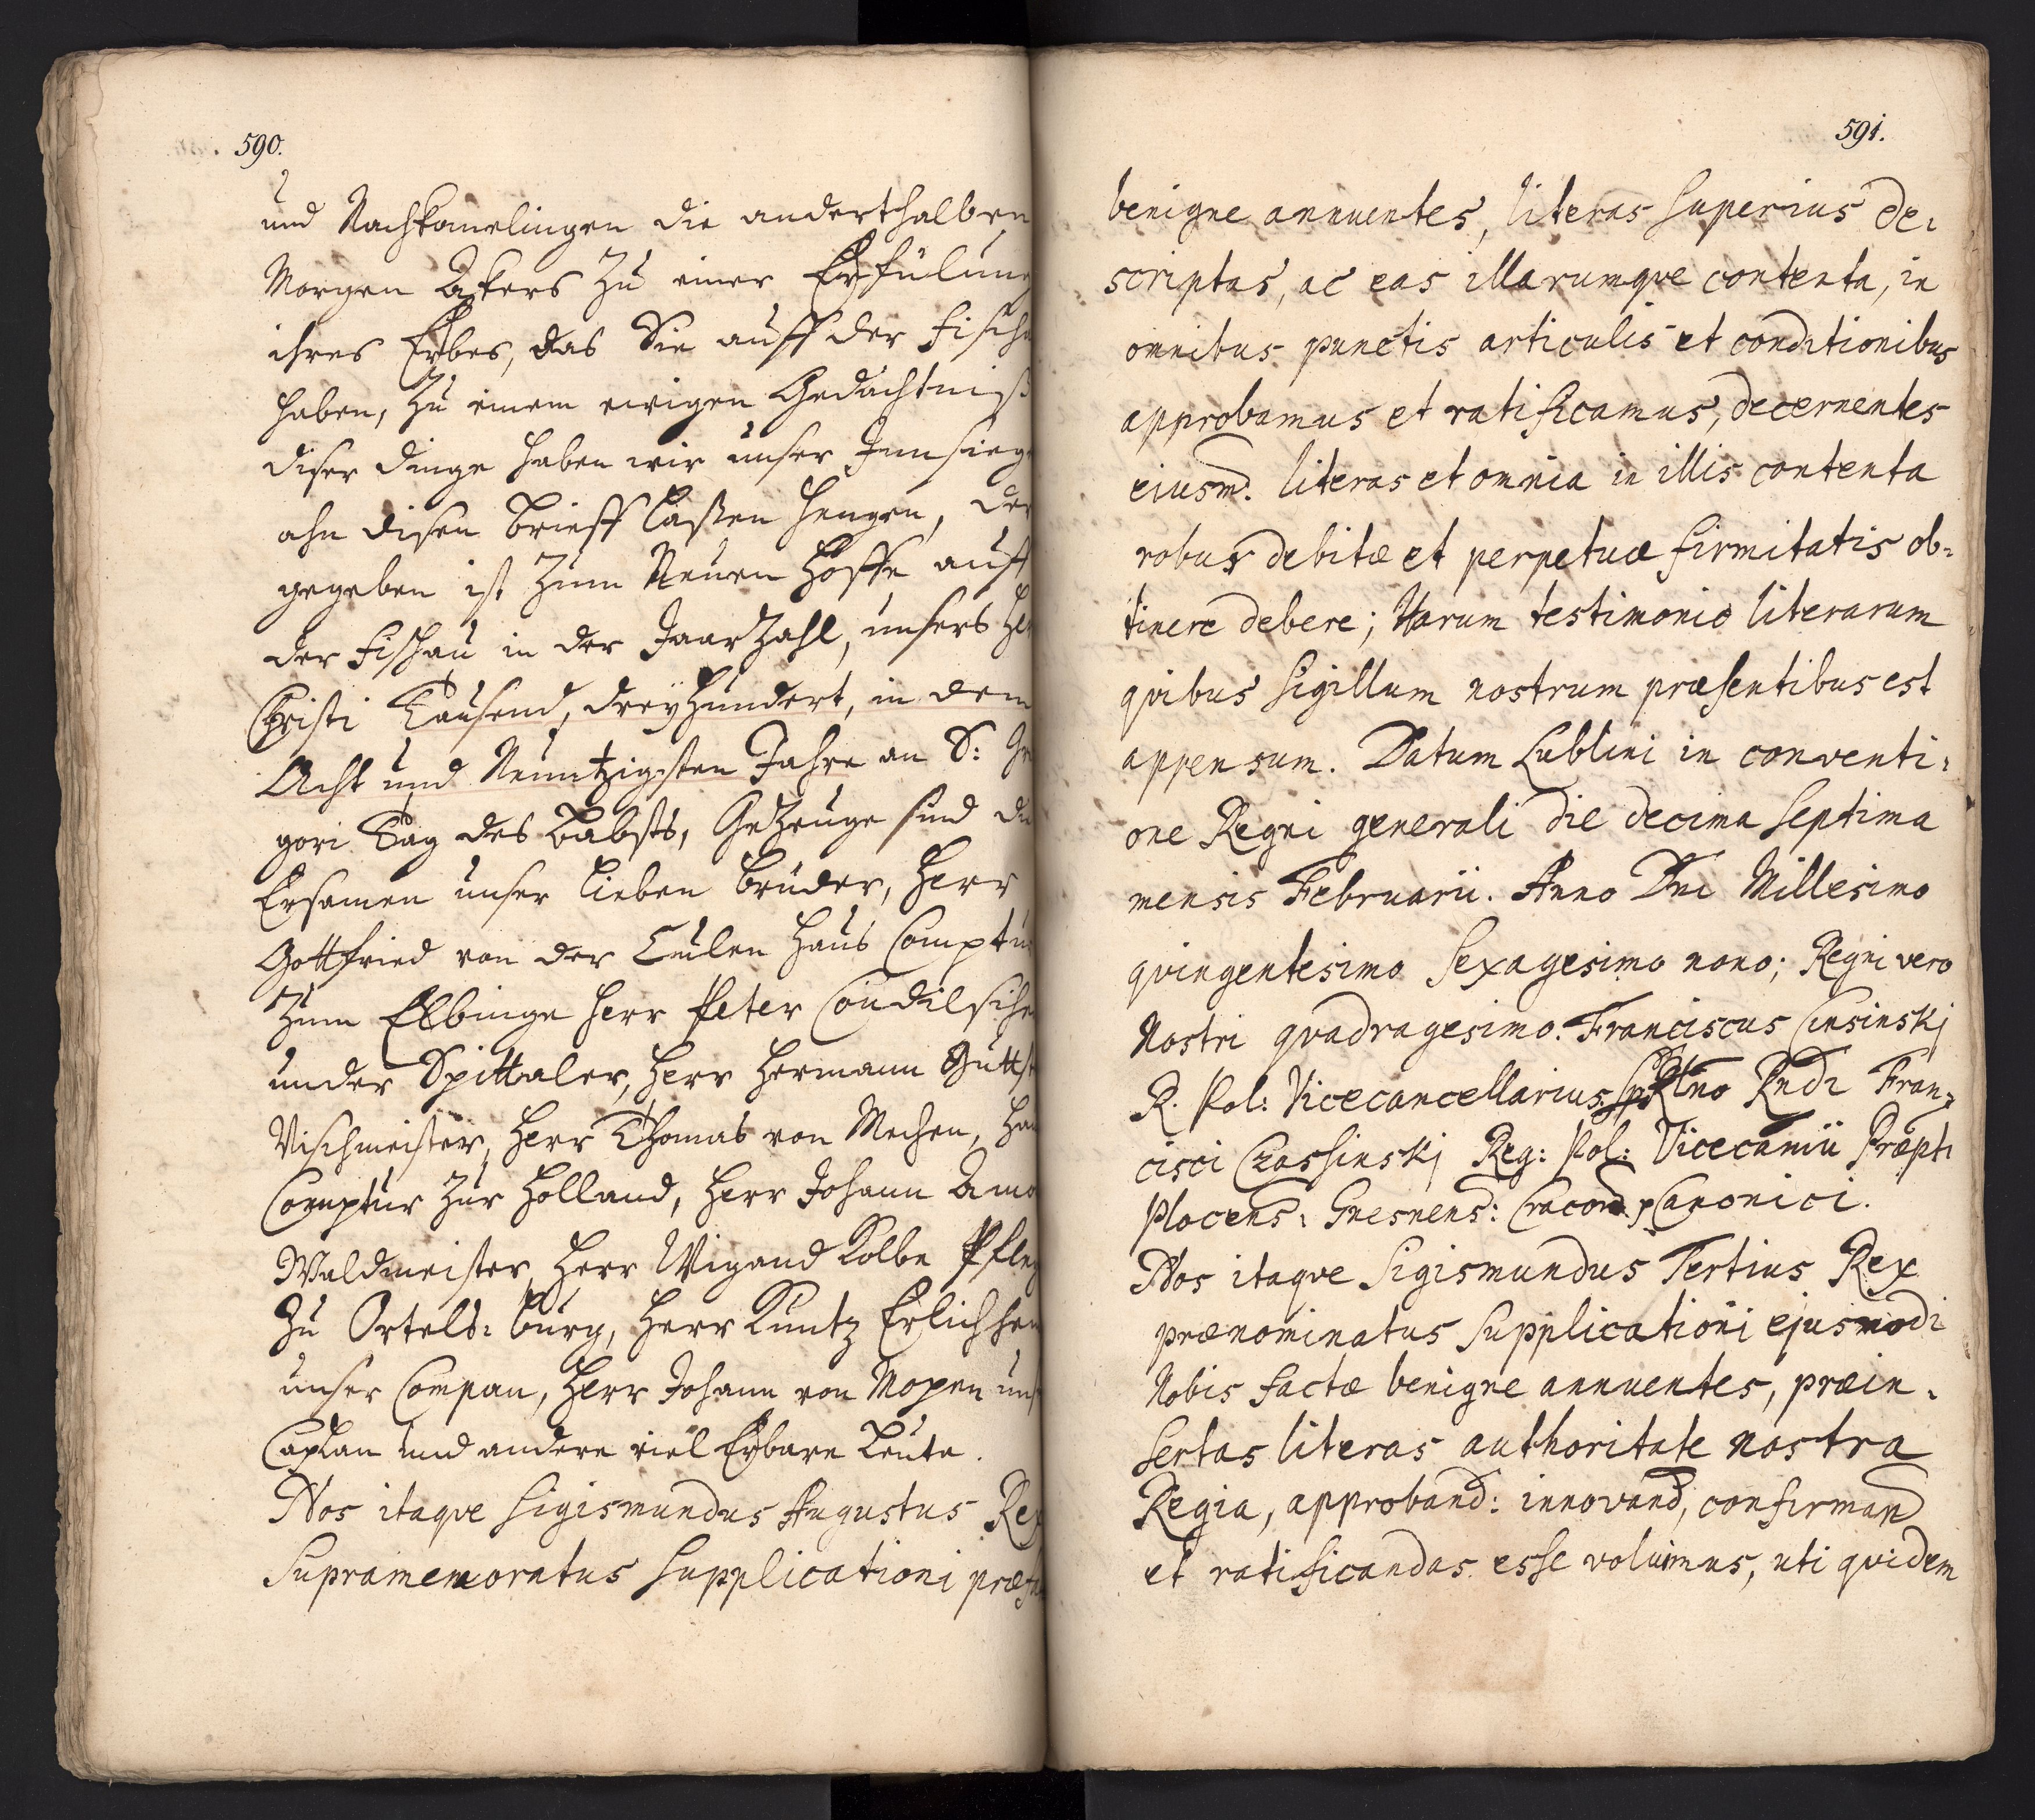 590.
und Nachkomelingen die anderthalben
Morgen Ackers zu einer Erfülung
ihres Erbes, das Sie auff der Fischa
haben, Zu einem ewigen Gedächtniß
diser dinge haben wir unser Innsieg
ahn disen brieff laßen hengen, der
gegeben ist zum Neuen Hoffe auff
der Fischau in der Jaarzahl, unsers He
Christi Tausend, dreyhundert, in dem
Acht und Neuntzigsten Jahre an S: Gre
gori Tag des Babsts, Gezeuge sind di
Ersamen unser lieben brüder, Herr
Gottfried von der Culen Haus Comptu
zum Elbinge Herr Peter
under Spittaler, Herr Hermann
Vischmeister, Herr Thomas von Mechen, Hau
Comptur zur Holland, Herr Johann
Waldmeister, Herr Wigand Kolbe Pfleg
zu Ortels: burg, Herr Kuntz Erlichhe
unser Compan, Herr Johann von Mopen uns
Caplan und andere viel Erbare Leute.
Nos itaqve Sigismundus Augustus Rex
Supramemoratus Supplicationi præf
591.
benigne annuentes, literas superius de:
scriptas, ac eas illarumqve contenta, in
omnibus punctis articulis et conditionibus
approbamus et ratificamus, decernentes
eiusm̃. literas et omnia in illis contenta
robur debitæ et perpetuæ firmitatis ob:
tinere debere; Harum testimonio literarum
qvibus Sigillum nostrum præsentibus est
appensum. Datum Lublini in conventi:
one Regni generali die decima Septima
mensis Februarii. Anno Dni Millesimo
qvingentesimo Sexagesimo nono; Regni vero
Nostri qvadragesimo. Franciscus Cinsinskj
R. Pol: Vicecancellarius. Rltno Rndi Fran:
cisci Crassinskj Reg: Pol: Vicecancii Præpti
Plocens: Gnesnens: Cracov Canonici.
Nos itaqve Sigismundus Tertius Rex
prænominatus Supplicationi ejusmodi
Nobis factæ benigne annuentes, præin:
sertas literas authoritate nostra
Regia, approband: innovand, confirmand
et ratificandas esse voluimus, uti qvidem